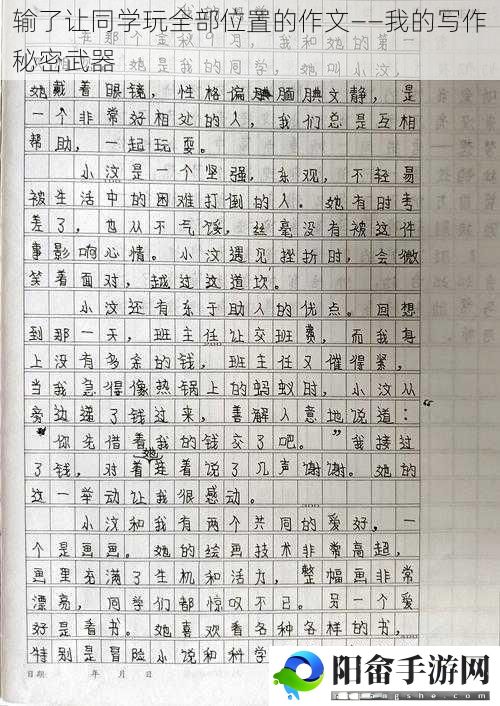 输了让同学玩全部位置的作文——我的写作
秘密武器
她戴着眼镜，性格偏腼腆文静，是
一个非常好相处的人，我们总是互相
帮助，一起玩耍。
小汶是一个坚强，乐观，不轻易
被生活中的困难打倒的人。她有时考
差了，也从不气馁，丝毫没有被这件
事影响心情。小汶遇见挫折时，会微
笑着面对，越过这道坎。
小汶还有乐于助人的优点。回想
到那一天，班主任让交班费，而我身
上没有多余的钱，班主任又催得紧，
当我急得像热锅上的蚂蚁时，小汶从
旁边递了钱过来，善解人意地说道：“
“你先借着我的钱交了吧。”我接过
了钱，对着她连着说了几声谢谢。她的
这一举动让我很感动。
小汶和我有两个共同的爱好，一
个是画画。她的绘画技术非常高超，
画里充满了生机和活力，整幅画非常
漂亮，同学们都惊叹不已。另一个爱
好是看书。她喜欢看各种各样的书，
特别是冒险小说和科学
日期： 年 月 日
阳畲手游网